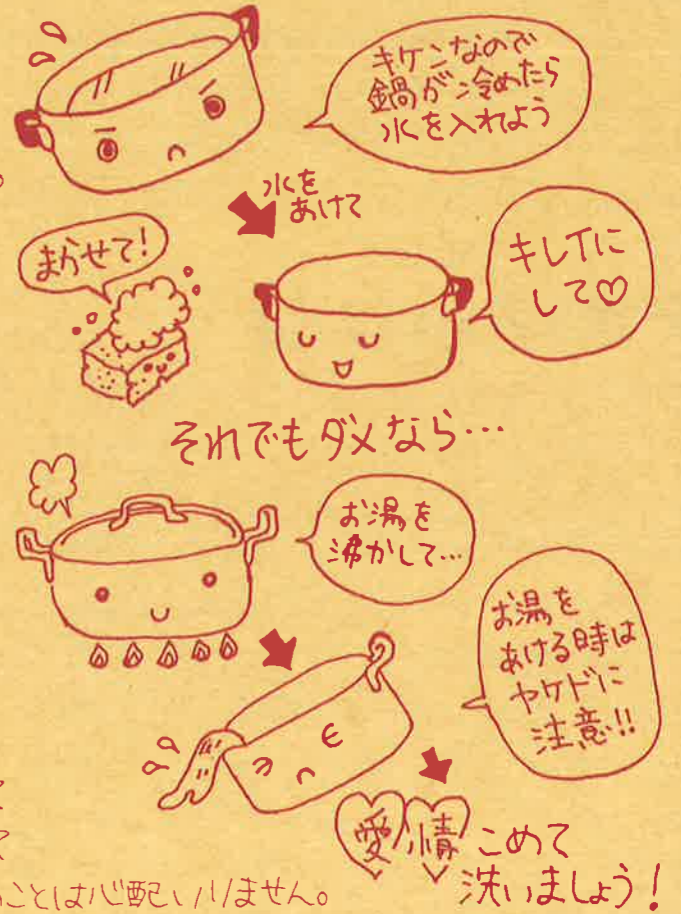 キケンなので
鍋が冷めたら
水を入れよう
水を
あけて
まかせて！
キレイに
して♡
それでもダメなら…
お湯を
沸かして…
お湯を
あける時は
ヤケドに
注意!!
愛情こめて
洗いましょう！
ことは心配いりません。